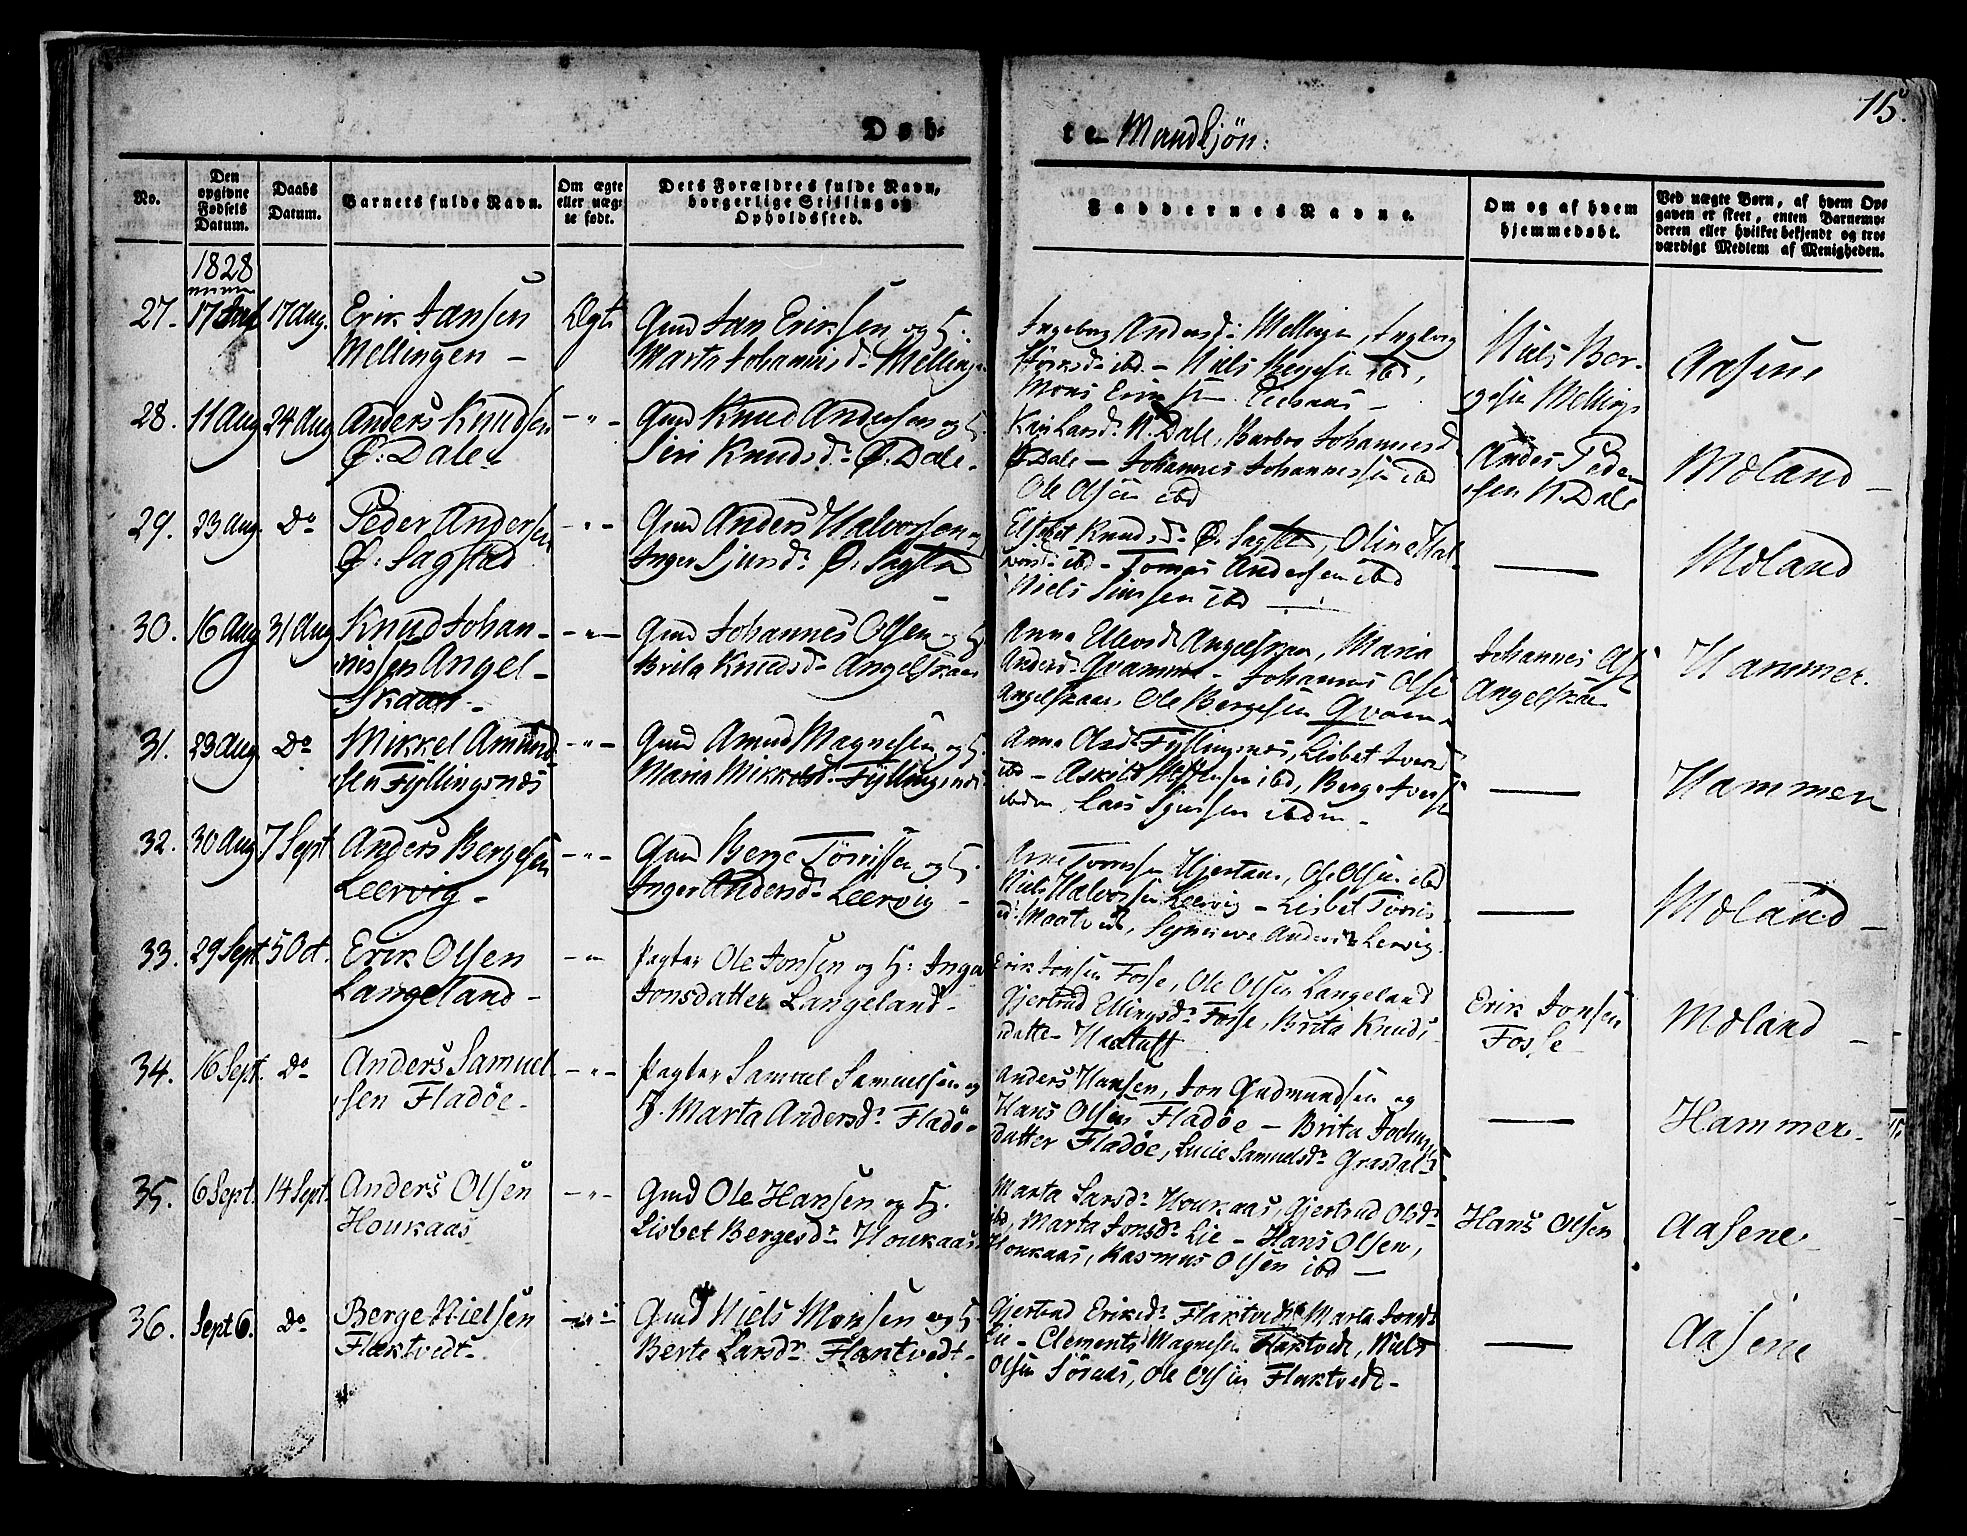 15.
Døb-
te Mandkjøn:
No.
Den opgivne Fødsels Datum.
Daabs Datum.
Barnets fulde Navn.
Om ægte eller uægte født.
Dets Forældres fulde Navn, borgerlige Stilling og Opholdssted.
Faddernes Navne.
Om og af hvem hjemmedøbt.
Ved uægte Børn, af hvem Opgaven er skeet, enten Barnemoderen eller hvilket bekjendt og troværdigt Medlem af Menigheden.
1828
27. 17 Aug. Erik Jansen Ægte Gmd Jan Eriksen og H.
Mellingen - Marta Johannisd. Mellingen
Ingeborg Andersd. Mellingen,
ibd - Niels Bergesen ibd,
Mons
Niels Ber-
gesen Mellingen
Aasene
28. 11 Aug 24 Aug Anders Knudsen -"- Gmd Knud Andersen og H.
Ø. Dale - Siri Knudsd. Ø. Dale.
Kari Larsd. N. Dale, Barbro Johannesd.
Ø Dale - Johannes Johannessen ibd
Ole Olsen ibd
Anders Peder-
sen N. Dale
Moland -
29. 23 Aug. Do Peder Andersen -"- Gmd Anders Halvorsen og
Ø. Sagstad Inger Sjursd. Ø. Sagsta
Elsebet Knudsd. Ø. Sagsta, Oline Hal-
vorsd. ibd - Tomas Andersen ibd
Niels Simsen ibd -
—
Moland
30. 16 Aug 31 Aug Knud Johan- -"- Gmd Johannes Olsen og H
nissen Angel- Brita Knudsd. Angelskaar
skaar.
Anna Angelskaar, Maria
Andersd. Qvamme - Johannes Olse
Angelskaar, Ole Bergesen Qvam-
Johannes Olse
Angelskar
Hammer.
31. 23 Aug. Do Mikkel Amund- -"- Gmd Amund Magnesen og H.
sen Fyllingsnæs Maria Mikkelsd. Fyllingsnæs
Anna Olsd. Fyllingsnæs, Lisbet Iversd
ibd - Askild ibd, Berge Iverse
ibdm, Lars Sjursen ibdm -
—
Hammer
32. 30 Aug 7 Sept Anders Bergesen -"- Gmd Berge Torrissen og H.
Leervig - Inger Andersd. Leervig -
Arne Torrissen Hjertaas, Ole Olsen ibd
Niels Halvorsen Leervig - Lisbet Torris-
d. Maatvedt, Synneve Andersd. Lervig.
—
Moland -
33. 29 Sept 5 Oct. Erik Olsen -"- Pagter Ole Jonsen og H: Inga
Langeland - Jonsdatter Langeland -
Erik Jonsen Fosse, Ole Olsen Langeland
Gjertrud Ellingsd. Fosse, Brita Knuds
datter Hartuft
Erik Jonsen
Fosse
Moland -
34. 16 Sept. Do Anders Samuel- -"- Pagter Samuel Samuelsen og
sen Fladøe - H. Marta Andersd. Fladø-
Anders Hansen, Jon Gudmundsen og
Hans Olsen Fladøe - Brita
datter Fladøe, Lucie Samuelsd. Grasdal.
—
Hammer.
35. 6 Sept. 14 Sept. Anders Olsen -"- Gmd Ole Hansen og H.
Houkaas Lisbet Bergesd. Houkaas
Marta Larsd. Houkaas, Gjertrud Olsd.
ibd, Marta Jonsd. Lie - Hans Olsen,
Houkaas, Rasmus Olsen ibd -
Hans Olsen
Aasene
36. Sept 6. Do Berge Nielsen -"- Gmd Niels Monsen og H
Flaktvedt - Berte Larsd. Flaktvedt -
Gjertrud Eriksd. Flaktvedt, Marta Jonsd.
Lie - Clement Magnesen Flaktvedt, Niels
Olsen Søraas, Ole Olsen Flaktvedt -
—
Aasene